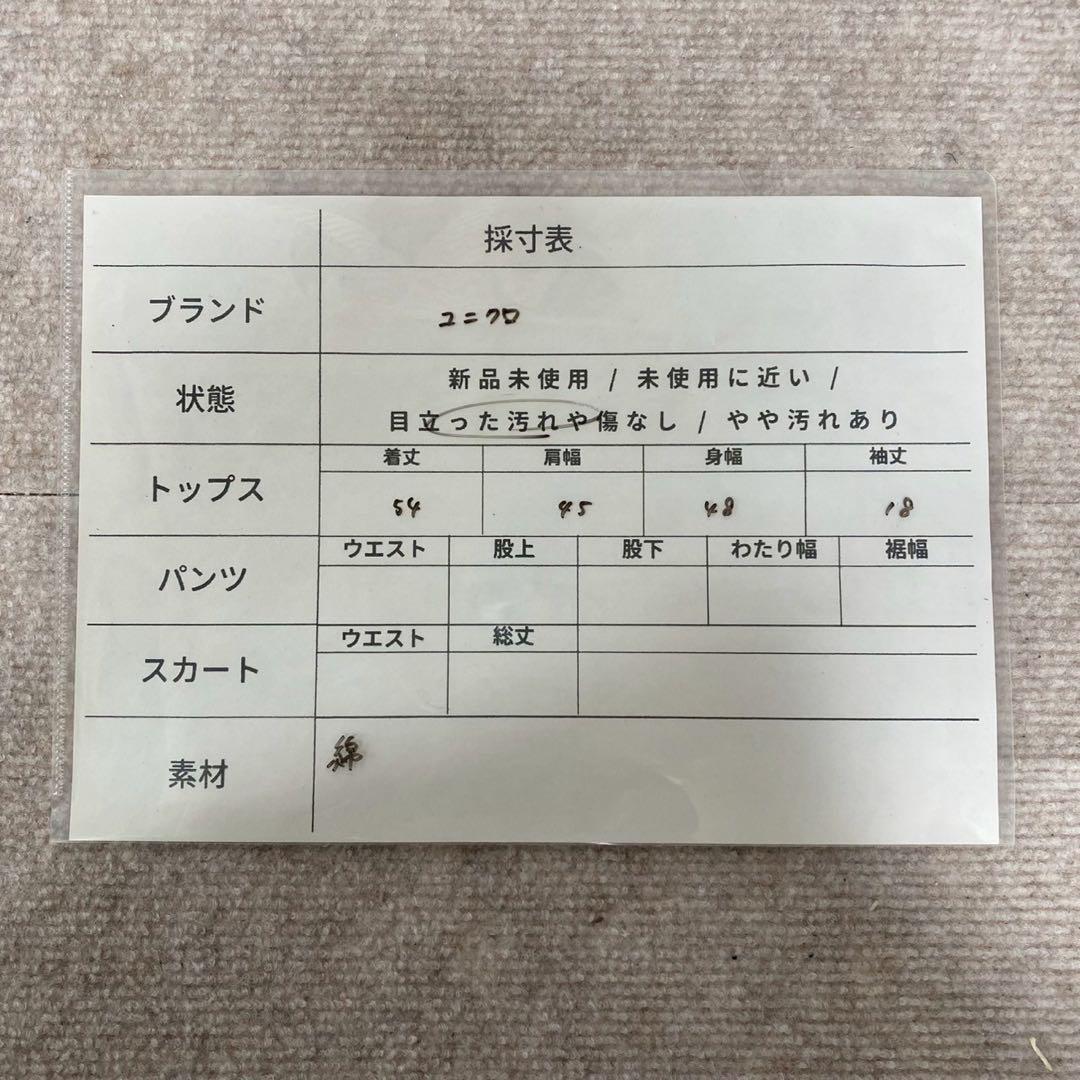 採寸表
ブランド ユニクロ
状態 新品未使用 / 未使用に近い /
目立った汚れや傷なし / やや汚れあり
トップス 着丈 肩幅 身幅 袖丈
54 45 48 18
パンツ ウエスト 股上 股下 わたり幅 裾幅
スカート ウエスト 総丈
素材 綿